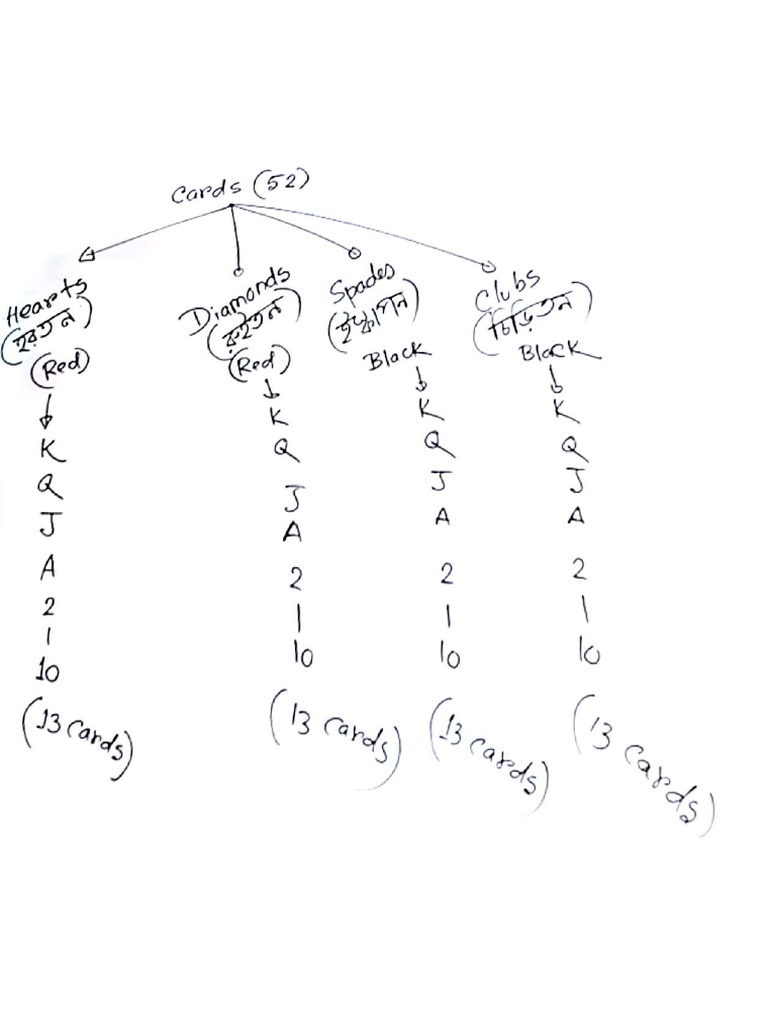 Cards (52)
Hearts
(হরতন)
(Red)
K
Q
J
A
2
|
10
(13 cards)
Diamonds
(রুইতন)
(Red)
K
Q
J
A
2
|
10
(13 cards)
Spades
(ইস্কাপন)
Black
K
Q
J
A
2
|
10
(13 cards)
Clubs
(চিড়িতন)
Black
K
Q
J
A
2
|
10
(13 cards)